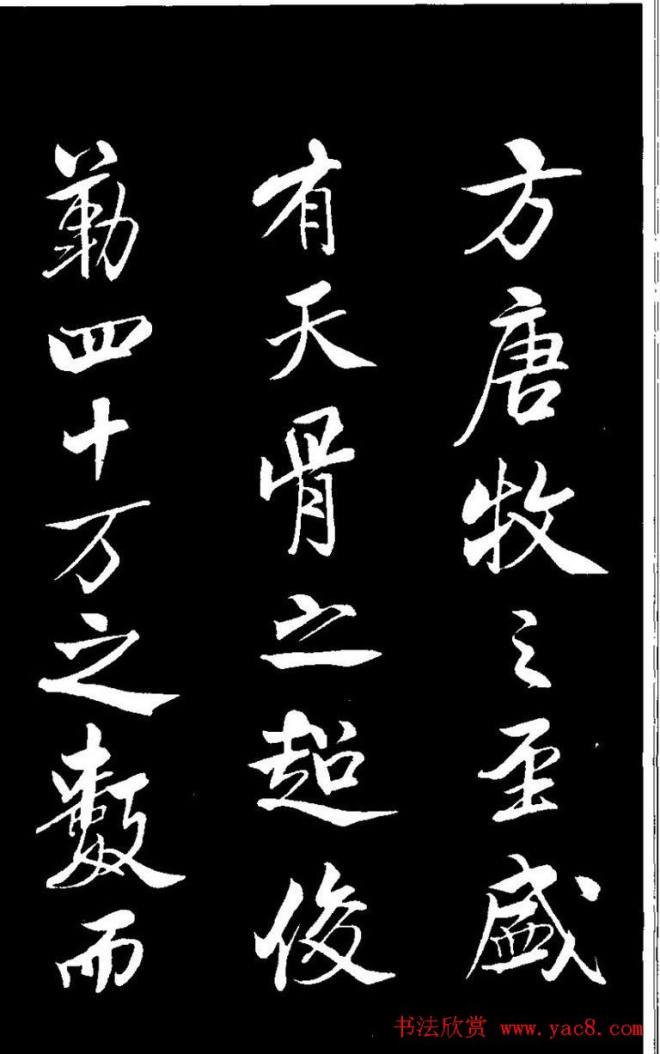 方唐牧之至盛
有天骨之超俊
勒四十万之數而
书法欣赏 www.yac8.com